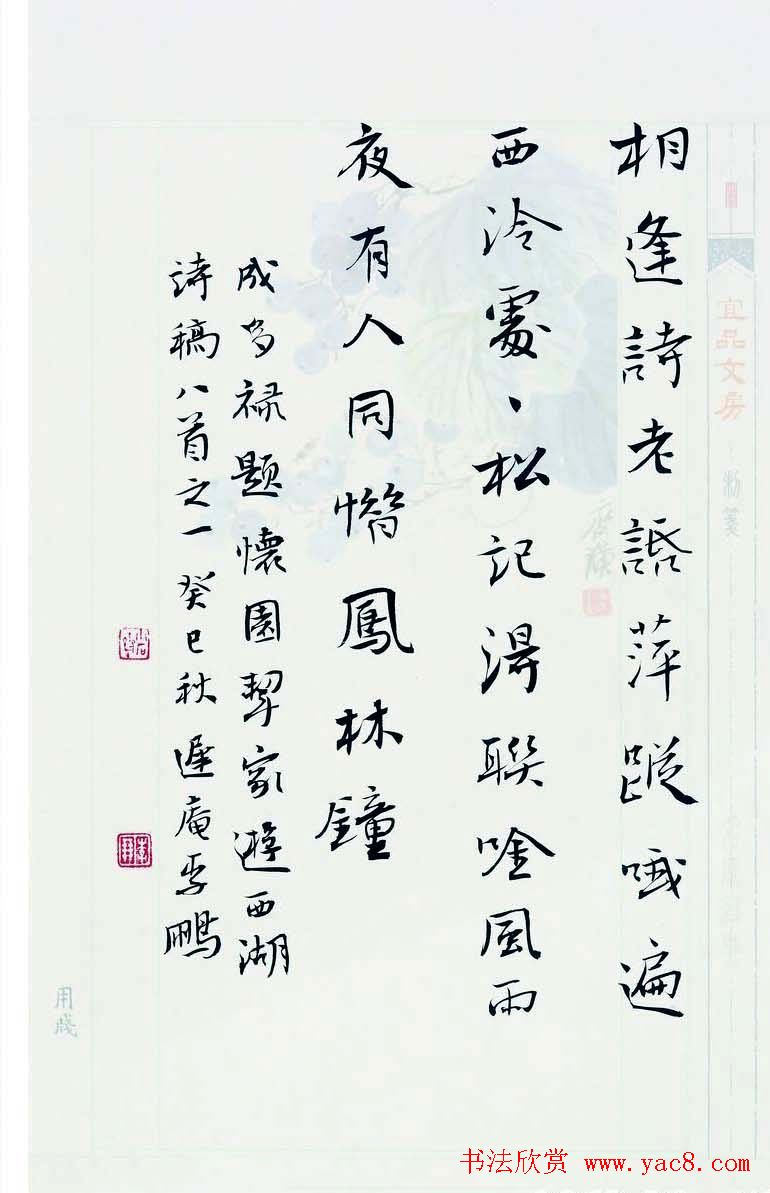 宜品文房
相逢詩老話萍蹤哦遍
西泠處、松記得聯唫風雨
夜有人同鳳林鐘
成多禄题懷園挈家遊西湖
詩稿八首之一癸巳秋遲庵李鵬
用牋
书法欣赏 www.yac8.com